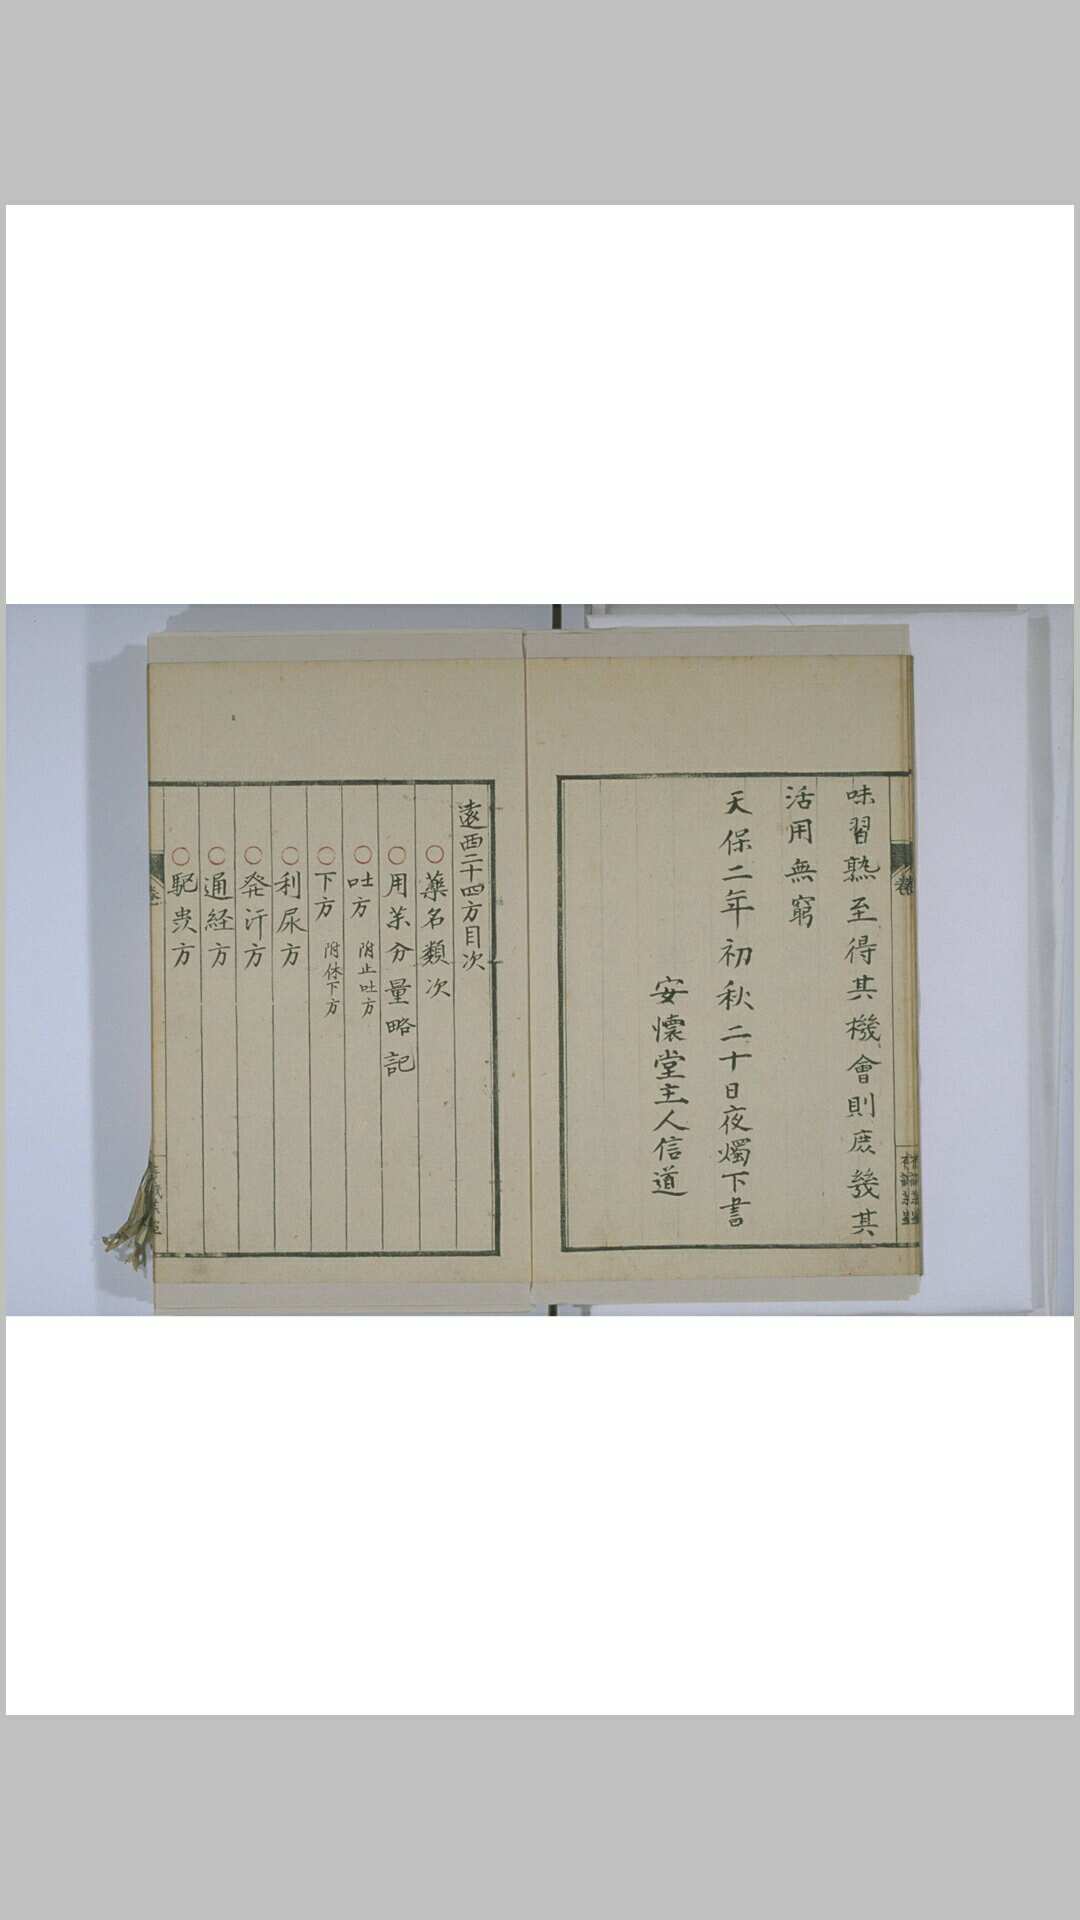 味習熟至得其機會則庶幾其
活用無窮
天保二年初秋二十日夜燭下書
安懐堂主人信道
遠西二十四方目次
○藥名類次
○用茶分量略記
○吐方 附止吐方
○下方 附休下方
○利尿方
○発汗方
○通経方
○駆蚘方